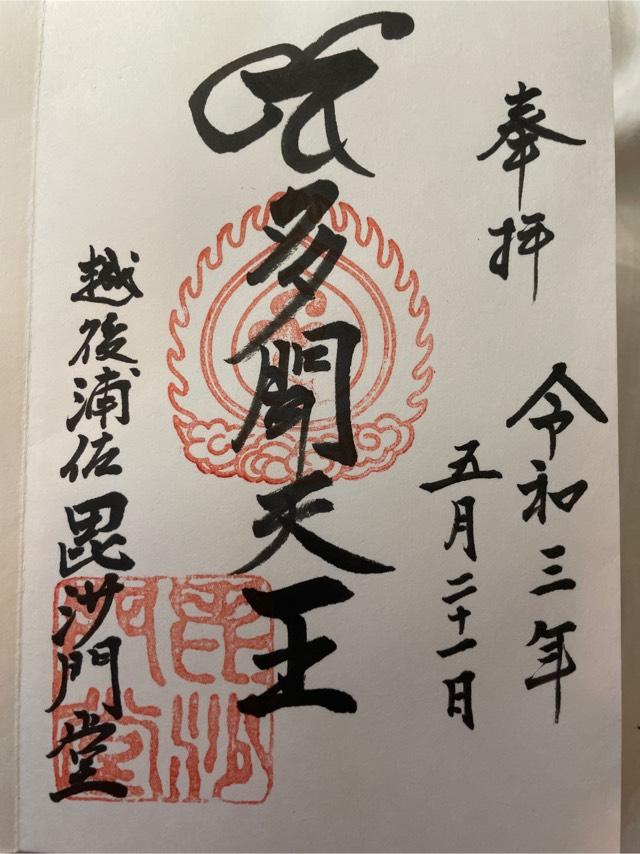 奉拝
令和三年
五月二十一日
多聞天王
越後浦佐毘沙門堂